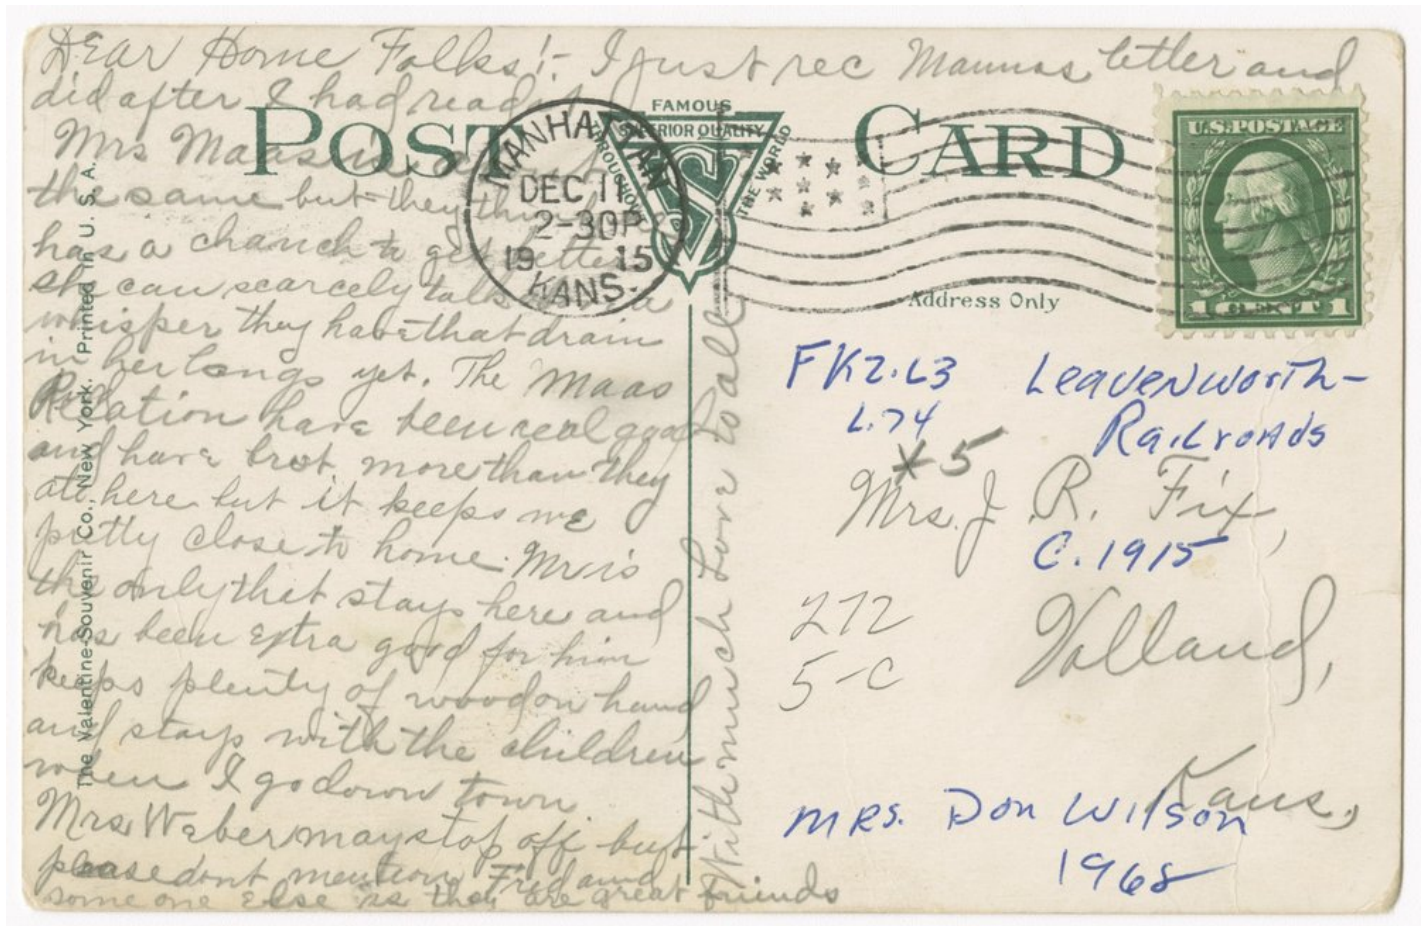 Dear Home Folks!- I just rec Mamas letter and
did after I had read it
Mrs Maas is about
the same but they think she
has a chanch to get better
She can scarcely talk a
whisper they have that drain
in her longs yet. The Maas
Relation have been real good
and have brot more than they
ate here but it keeps me
pretty close to home. Mr is
the only that stays here and
has been extra good for him
keeps plenty of wood on hand
and stays with the children
when I go down town
Mrs Weber may stop off but
please dont mention Fred and
some one else as they are great friends
With much Love to all
POST CARD
FAMOUS
SUPERIOR QUALITY
THROUGHOUT
THE WORLD
VS
MANHATTAN
DEC 11
2-30P
19 15
KANS.
U.S. POSTAGE
1 CENT 1
Address Only
FK2.L3 Leavenworth-
L.74 Railroads
*5
Mrs. J. R. Fix,
C. 1915
272
5-C
Volland,
Kans,
MRS. Don Wilson
1968
The Valentine-Souvenir Co., New York. Printed in U. S. A.